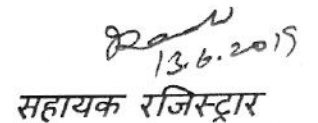 13.6.2019
सहायक रजिस्ट्रार